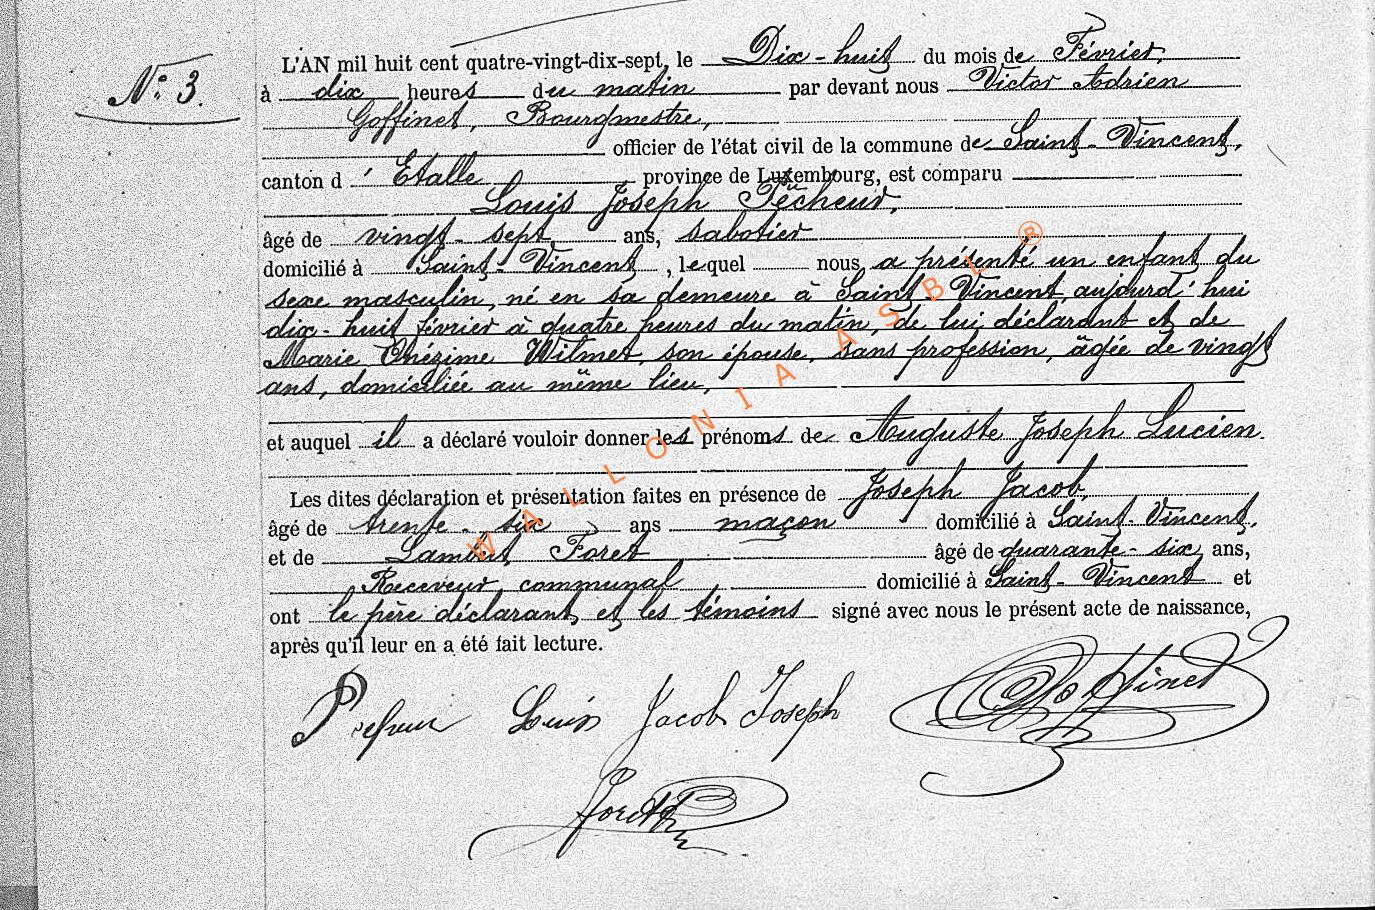 N° 3.
L'AN mil huit cent quatre-vingt-dix-sept, le Dix-huit du mois de Février,
à dix heures du matin par devant nous Victor Adrien
Goffinet, Bourgmestre,
officier de l'état civil de la commune de Saint-Vincent,
canton d'Etalle province de Luxembourg, est comparu
Louis Joseph Pêcheur,
âgé de vingt-sept ans, sabotier
domicilié à Saint-Vincent, lequel nous a présenté un enfant du
sexe masculin, né en sa demeure à Saint Vincent, aujourd'hui
dix-huit février à quatre heures du matin, de lui déclarant et de
Marie Onézime Wilmet, son épouse, sans profession, âgée de vingt
ans, domiciliée au même lieu,
et auquel il a déclaré vouloir donner les prénoms de Auguste Joseph Lucien.
Les dites déclaration et présentation faites en présence de Joseph Jacob,
âgé de trente-six ans maçon domicilié à Saint-Vincent,
et de Lambert Foret âgé de quarante-six ans,
Receveur communal domicilié à Saint-Vincent et
ont le père déclarant et les témoins signé avec nous le présent acte de naissance,
après qu'il leur en a été fait lecture.
Louis Jacob Joseph Goffinet
WALLONIA ASBL ®